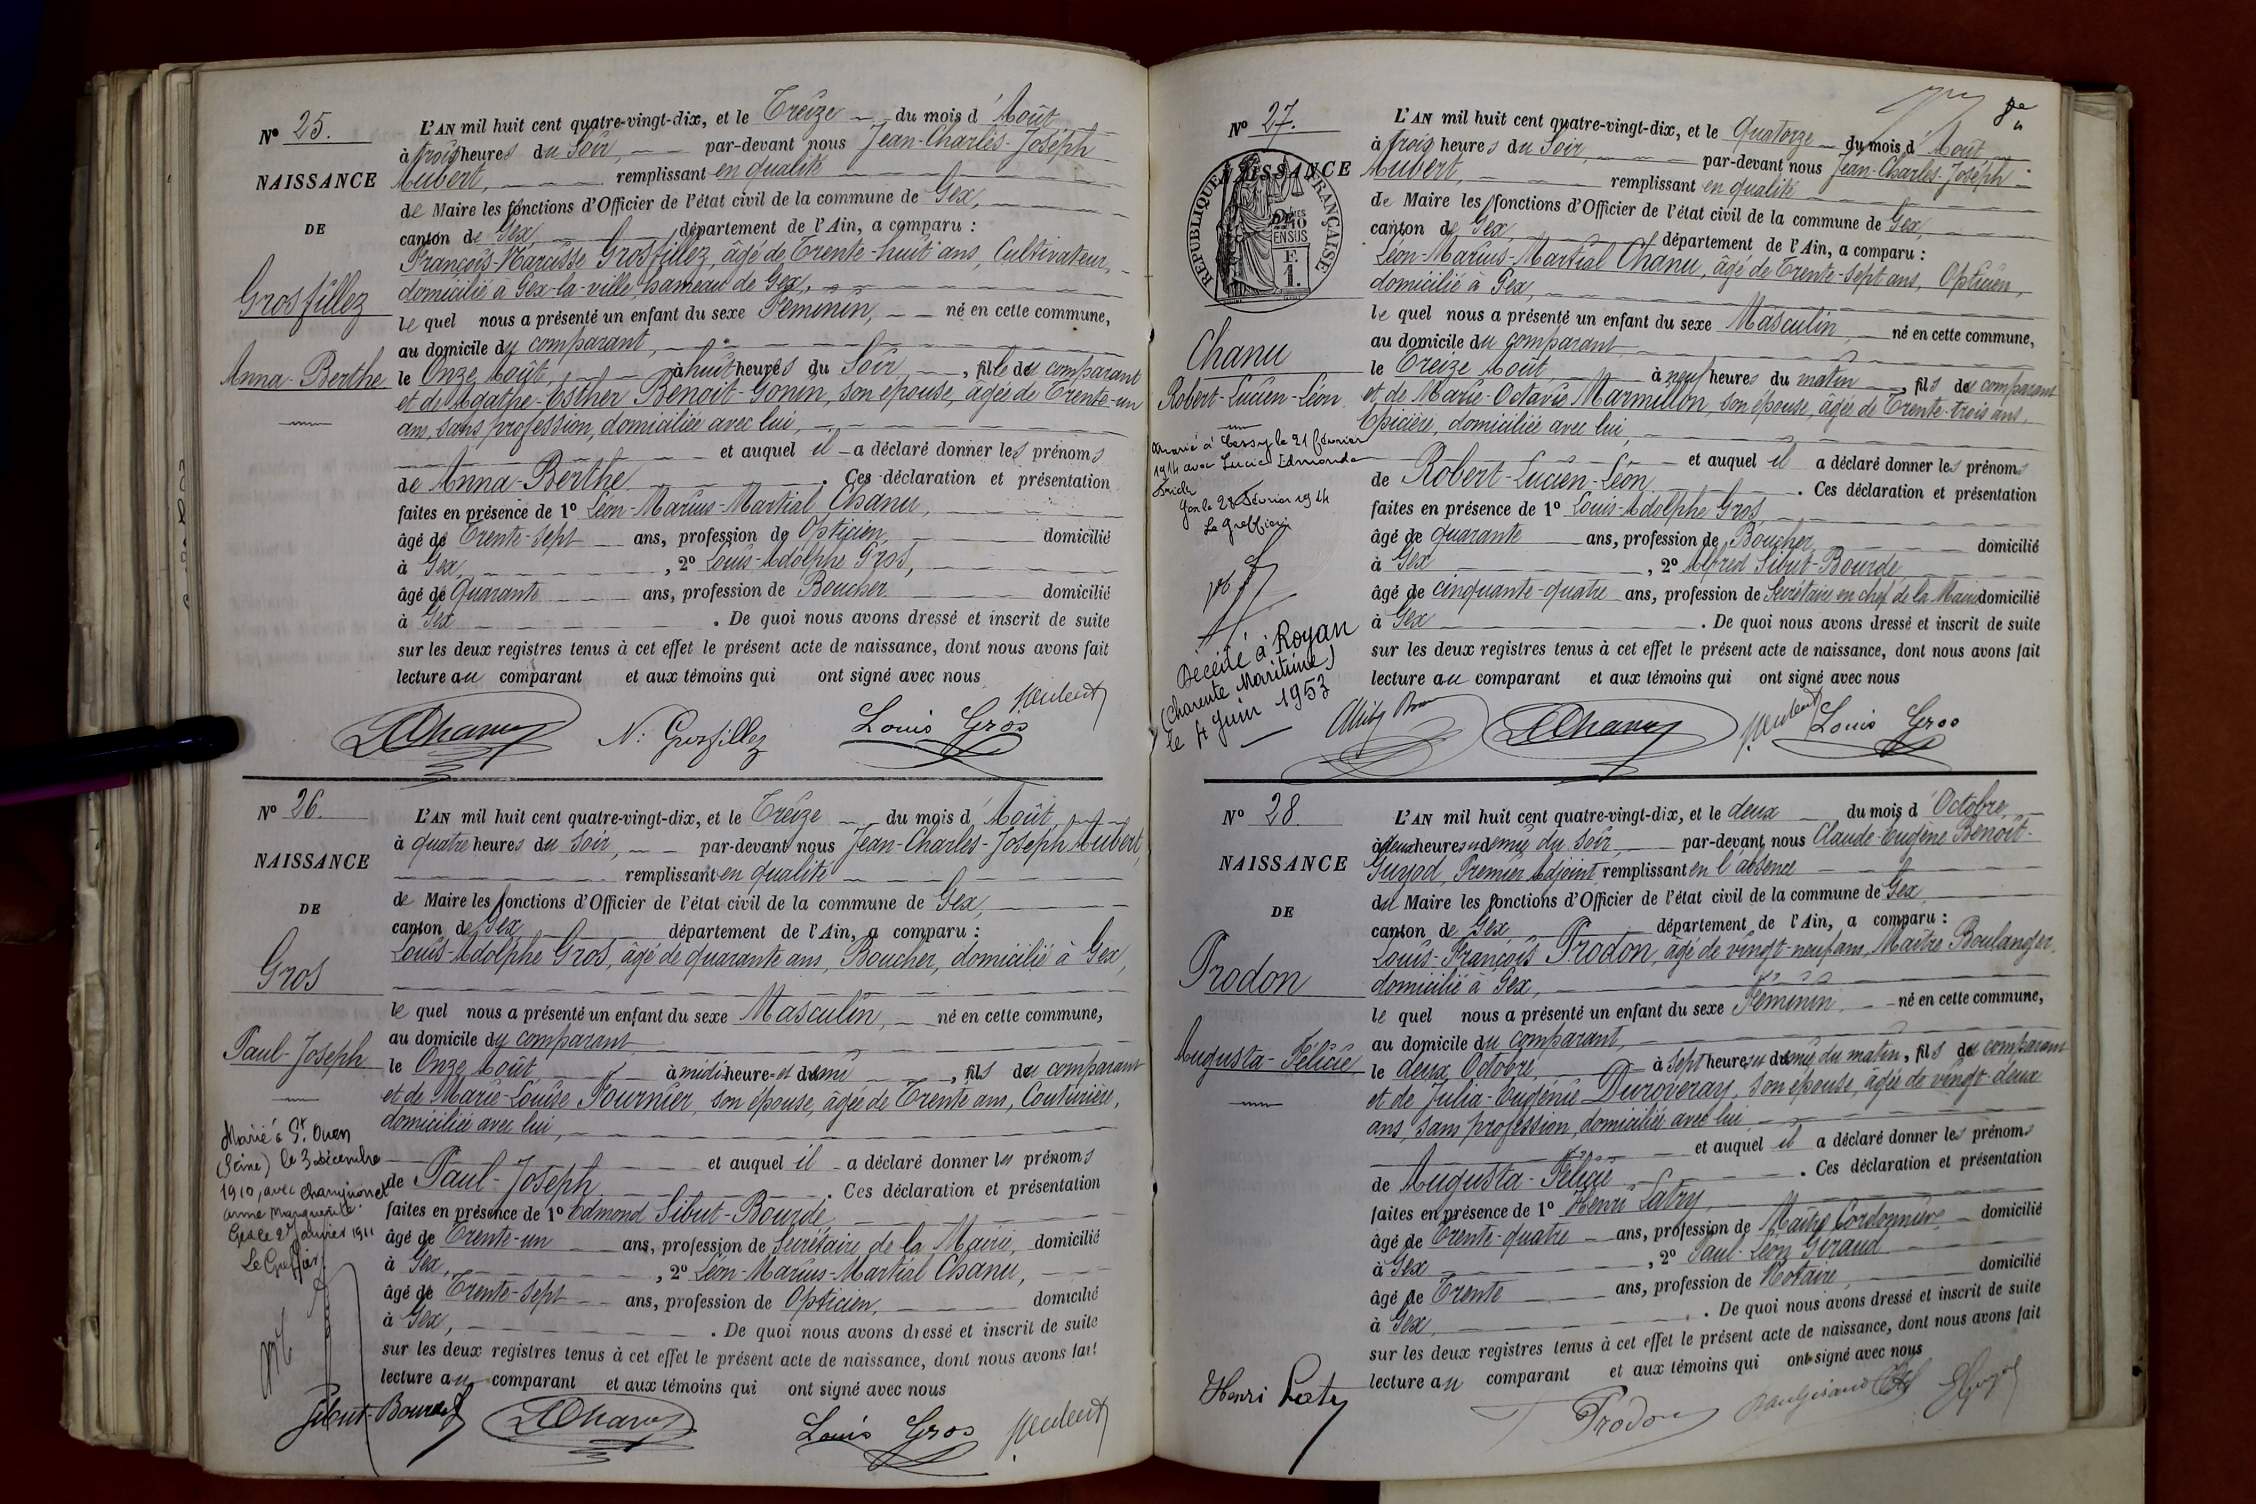 Nº 25.
NAISSANCE
DE
Grosfillez
Anna-Berthe
L'AN mil huit cent quatre-vingt-dix, et le Treize du mois d'Août
à trois heures du Soir, par-devant nous Jean-Charles-Joseph
Aubert, remplissant en qualité
de Maire les fonctions d'Officier de l'état civil de la commune de Gex,
canton de Gex, département de l'Ain, a comparu :
François-Narcisse Grosfillez, âgé de Trente-huit ans, Cultivateur,
domicilié à Gex-la-ville, hameau de Gex,
le quel nous a présenté un enfant du sexe Féminin, né en cette commune,
au domicile du comparant,
le Onze Août, à huit heures du Soir, fille du comparant
et de Agathe-Esther Benoit-Gonin, son épouse, âgée de Trente-un
ans, sans profession, domiciliée avec lui,
et auquel il a déclaré donner les prénoms
de Anna-Berthe. Ces déclaration et présentation
faites en présence de 1º Léon-Marius-Martial Chanu,
âgé de Trente-sept ans, profession de Opticien, domicilié
à Gex, 2º Louis-Adolphe Gros,
âgé de Quarante ans, profession de Boucher domicilié
à Gex. De quoi nous avons dressé et inscrit de suite
sur les deux registres tenus à cet effet le présent acte de naissance, dont nous avons fait
lecture au comparant et aux témoins qui ont signé avec nous
LChanu N. Grosfillez Louis Gros JAubert
Nº 26.
NAISSANCE
DE
Gros
Paul-Joseph
Marié à St. Ouen
(Seine) le 3 décembre
1910, avec Championnet
Anne Marguerite.
Gex le 2 Janvier 1911
Le Greffier
L'AN mil huit cent quatre-vingt-dix, et le Treize du mois d'Août,
à quatre heures du soir, par-devant nous Jean-Charles-Joseph Aubert,
remplissant en qualité
de Maire les fonctions d'Officier de l'état civil de la commune de Gex,
canton de Gex département de l'Ain, a comparu :
Louis-Adolphe Gros, âgé de quarante ans, Boucher, domicilié à Gex,
le quel nous a présenté un enfant du sexe Masculin, né en cette commune,
au domicile du comparant
le Onze Août à midi heure et demie, fils du comparant
et de Marie-Louise Fournier, son épouse, âgée de Trente ans, Couturière,
domiciliée avec lui,
et auquel il a déclaré donner les prénoms
de Paul-Joseph. Ces déclaration et présentation
faites en présence de 1º Edmond Sibut-Bourde
âgé de Trente-un ans, profession de Secrétaire de la Mairie, domicilié
à Gex, 2º Léon-Marius-Martial Chanu,
âgé de Trente-sept ans, profession de Opticien, domicilié
à Gex, . De quoi nous avons dressé et inscrit de suite
sur les deux registres tenus à cet effet le présent acte de naissance, dont nous avons fait
lecture au comparant et aux témoins qui ont signé avec nous
Sibut-Bourde LChanu Louis Gros JAubert
Nº 27.
NAISSANCE
RÉPUBLIQUE FRANÇAISE
Chanu
Robert-Lucien-Léon
Marié à Cessy le 21 février
1914 avec Lucie Edmonde
Gex le 28 Février 1914
Le Greffier
Décédé à Royan
(Charente Maritime)
le 4 Juin 1953
L'AN mil huit cent quatre-vingt-dix, et le Quatorze du mois d'Août
à trois heures du Soir, par-devant nous Jean-Charles-Joseph
Aubert, remplissant en qualité
de Maire les fonctions d'Officier de l'état civil de la commune de Gex,
canton de Gex, département de l'Ain, a comparu :
Léon-Marius-Martial Chanu, âgé de Trente-sept ans, Opticien,
domicilié à Gex,
le quel nous a présenté un enfant du sexe Masculin, né en cette commune,
au domicile du comparant
le Treize Août, à neuf heures du matin, fils du comparant
et de Marie-Octavie Marmillon, son épouse, âgée de Trente-trois ans,
Epicière, domiciliée avec lui,
et auquel il a déclaré donner les prénoms
de Robert-Lucien-Léon. Ces déclaration et présentation
faites en présence de 1º Louis-Adolphe Gros,
âgé de quarante ans, profession de Boucher domicilié
à Gex, 2º Alfred Sibut-Bourde
âgé de cinquante-quatre ans, profession de Secrétaire en chef de la Mairie domicilié
à Gex. De quoi nous avons dressé et inscrit de suite
sur les deux registres tenus à cet effet le présent acte de naissance, dont nous avons fait
lecture au comparant et aux témoins qui ont signé avec nous
LChanu JAubert Louis Gros
Nº 28
NAISSANCE
DE
Prodon
Augusta-Félicie
L'AN mil huit cent quatre-vingt-dix, et le deux du mois d'Octobre,
à deux heures et demie du soir, par-devant nous Claude-Eugène Benoît-
Guyod, Premier Adjoint remplissant en l'absence
du Maire les fonctions d'Officier de l'état civil de la commune de Gex
canton de Gex département de l'Ain, a comparu :
Louis-François Prodon, âgé de vingt-neuf ans, Maître Boulanger,
domicilié à Gex,
le quel nous a présenté un enfant du sexe Féminin, né en cette commune,
au domicile du comparant,
le deux Octobre, à sept heures et demie du matin, fils du comparant
et de Julia-Eugénie Duroveray, son épouse, âgée de vingt-deux
ans, sans profession, domiciliée avec lui
et auquel il a déclaré donner les prénoms
de Augusta-Félicie. Ces déclaration et présentation
faites en présence de 1º Henri Latry,
âgé de Trente-quatre ans, profession de Maître Cordonnier domicilié
à Gex, 2º Paul-Léon Giraud
âgé de Trente ans, profession de Notaire, domicilié
à Gex. De quoi nous avons dressé et inscrit de suite
sur les deux registres tenus à cet effet le présent acte de naissance, dont nous avons fait
lecture au comparant et aux témoins qui ont signé avec nous
Henri Latry Prodon